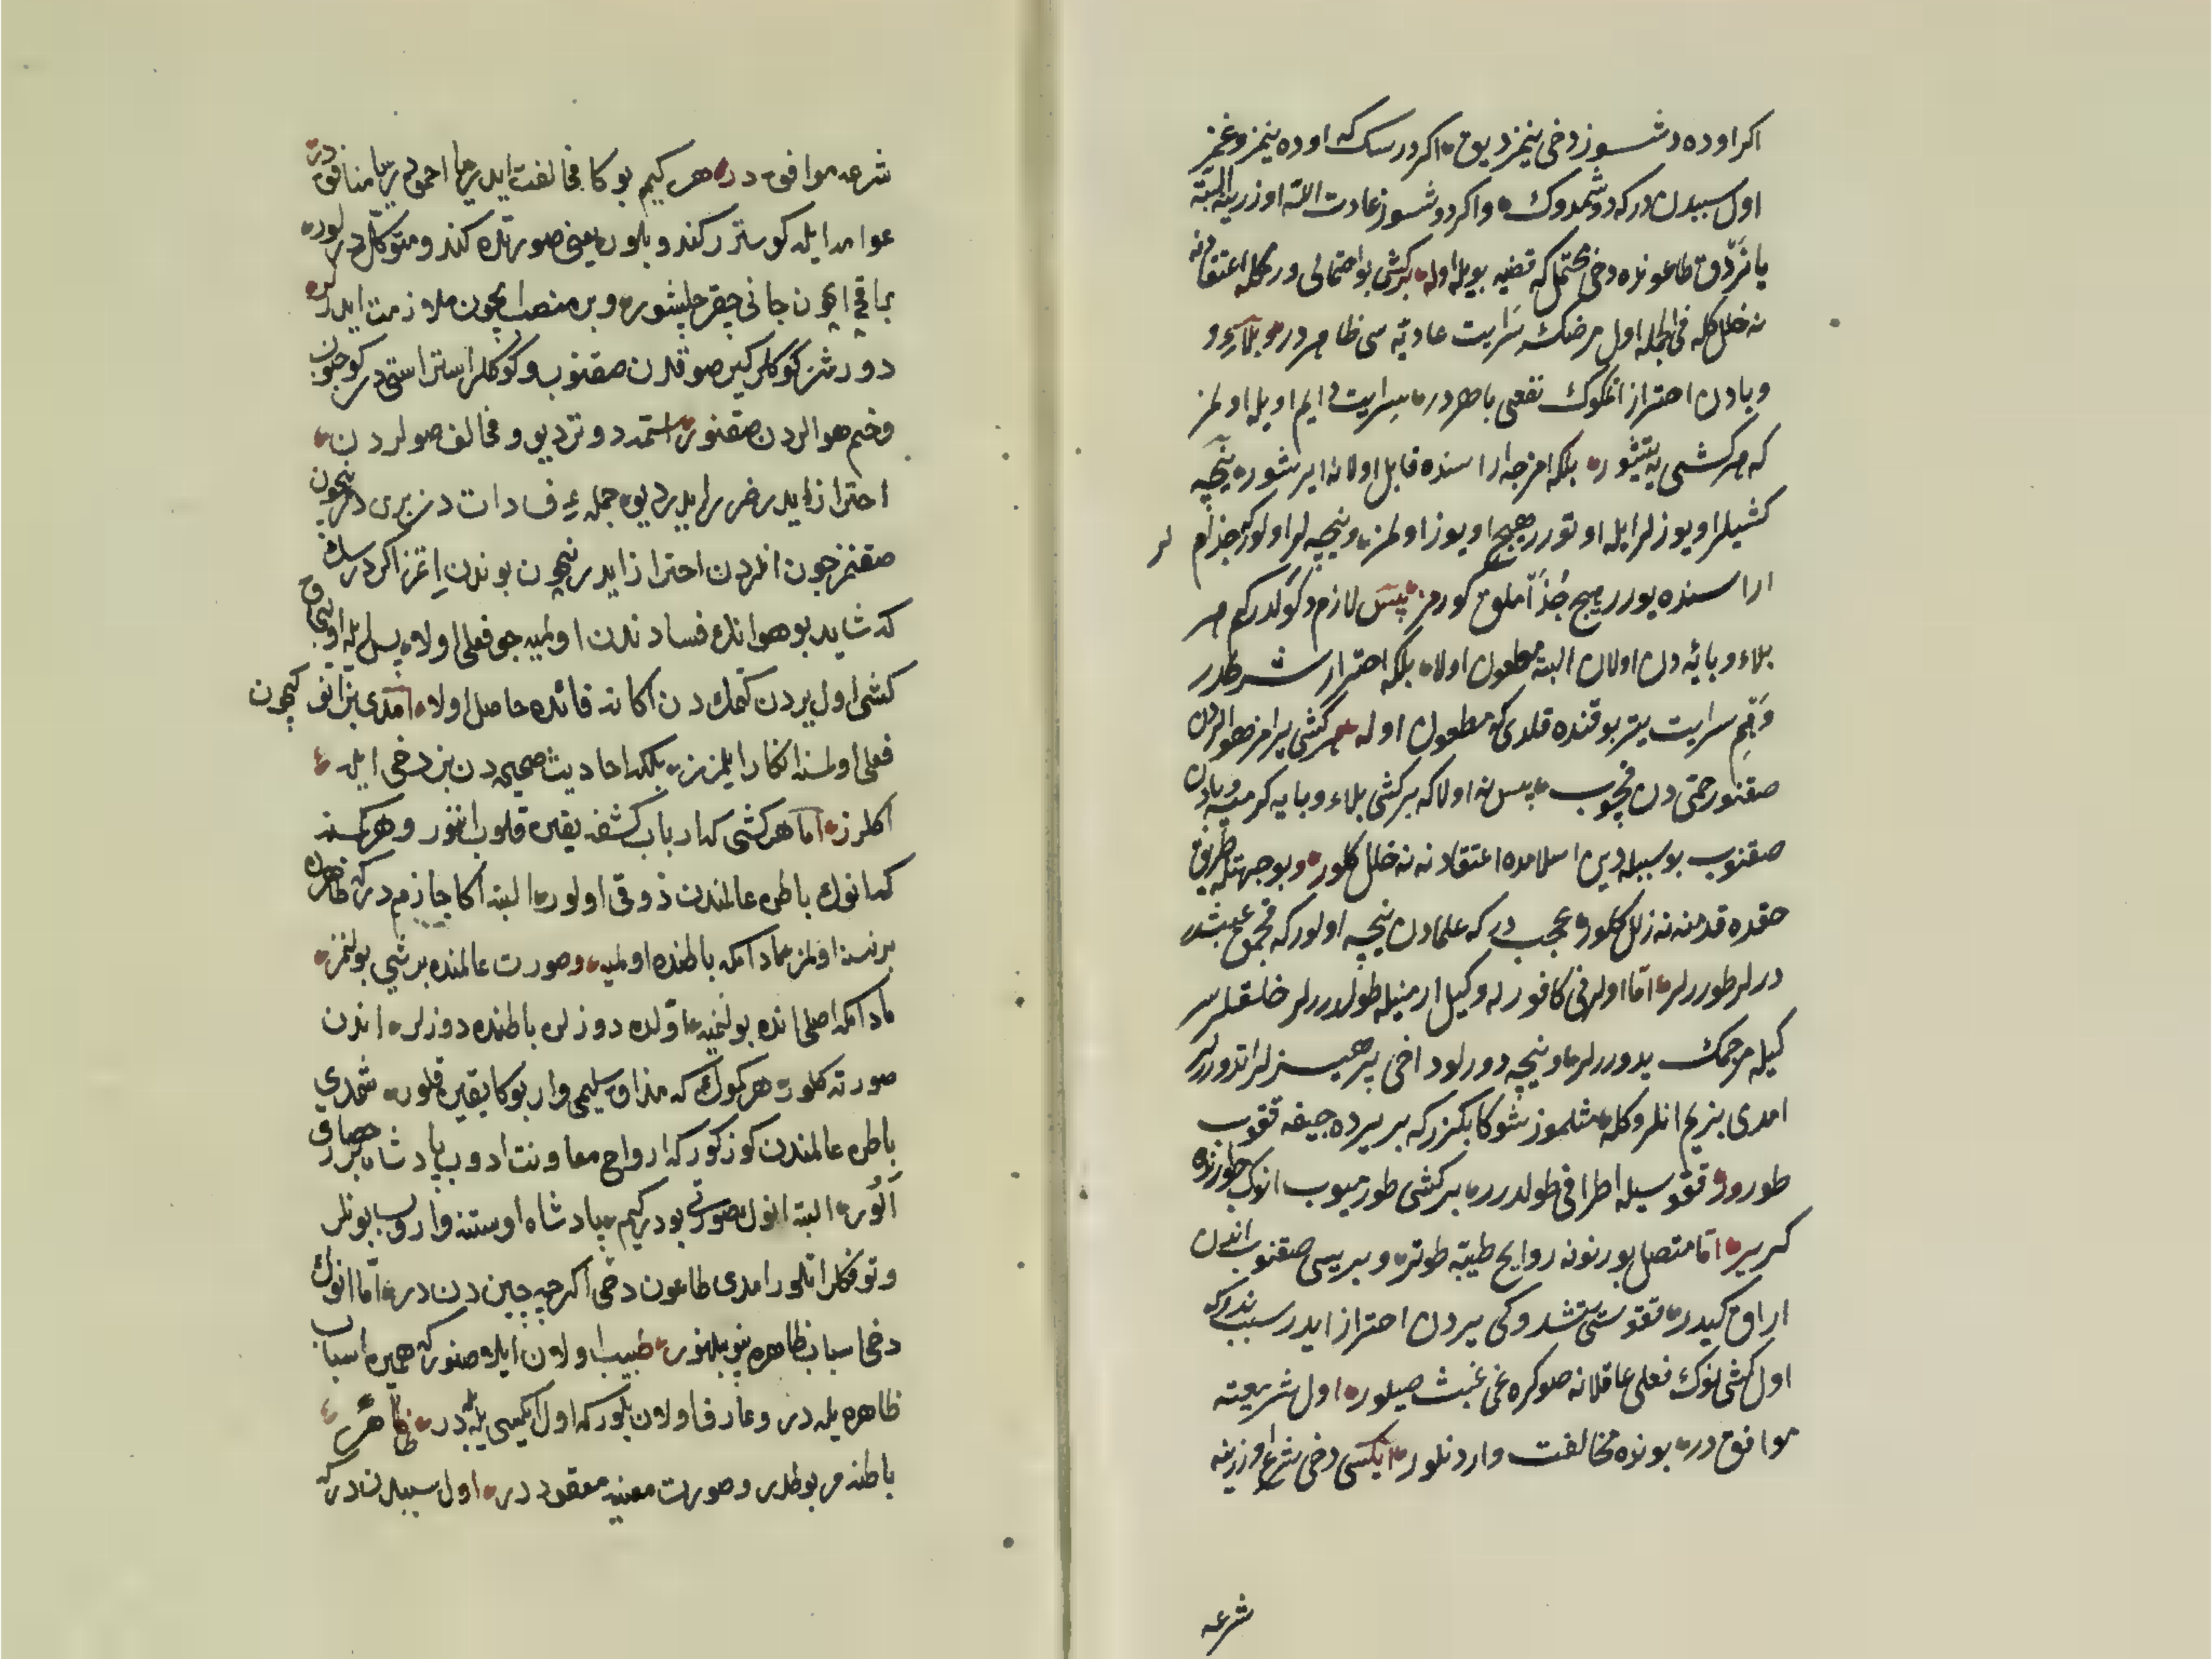 اكر اوده دشسوز دخی ینمز دیو اكر درسك كه اوده ینمز وغمز
اول سببدن دركه دوشمدوك واكر دوشسوز عادت الله اوزرینه البته
یانرز دق طاعونده دخی محتمل كه قضیه بویله اوله بركشی بو احتمالی ورمكله اعتقادنه
نه خلل كله فی الجمله اول مرضك سرایت عادیه سی ظاهر در وبلاء و
وبادن احتراز اتمكوك نفعی باهر در سرایت دایم اویله اولمز
كه هر كشی یه یتیشور بلكه امزجه اراسنده قابل اولانه ایریشور نیچه
كشیلر اویوزلر ایله اوتورر هیچ اویوز اولمز ونیچه لر اولور كه جذام لر
اراسنده یورر هیچ جذاملق كورمز پس لازم دكولدر كم هر
بلاء وبائیه دن اولان البته مطعون اولا بلكه احتراز شرطدر
وهم سرایت یتر بو قنده قلدی كه مطعون اوله هر كشی یرامز هوالردن
صقنور حمتی دن قچوب پس نه اولا كه بر كشی بلاء وبایه كرمیه وبادن
صقنوب بو سببله دین اسلامده اعتقادنه نه خلل كلور وبو جهتله طریق
حقده قدمنه نه زلل كلور عجب در كه علمادن نیچه اولور كه قچمق عبثدر
درلر طوررلر اما اولرنی كافور له وكیل ارمنیله طولدررلر خلقلر سر
كیله مرجمك یدوررلر ونیچه دورلو داخی پرهیزلر اتدوررلر
امدی بزیم انلروكله مثلموز شوكا بكزر كه بر یرده جیفه ققوب
طورور ققوسیله اطرافی طولدرر بر كشی طورمیوب انوك طورنده
كریر اما متصل بورنونه روایح طیبه طوتر و بریسی صقنوب اندن
اراق كیدر ققوسی یتشدوكی یردن احتراز ایدر سبب ندوركه
اول كشی انوك فعلی عاقلانه صوكره غی عبث صیلور اول شریعته
موافق در بونده مخالفت وارد نلور ایكسی دخی شرع اوزرینه
شرعه
شرعه موافق در هر كیم بوكا مخالفت ایدر یا احمق در یا منافق در
عوامه ایله كوستر ركندو بلور یعنی صورتده كندو متوكل در لور
باقی ایچون جانی چقر چلیشور وبر منصب ایچون ملازمت ایدر
دورشر كوكلر كیر صوقدن صقنوب وكوكلر استر استی در كوجنوب
وخم هوالردن صقنور استمه دوتر دیو ومخالف صولردن
احتراز ایدر ضرر ایدر دیو جمله ء فسادات دن بری در نیچون
صقنمز چون انلردن احتراز ایدر نیچون بوندن اتمز اكر درسك
كه شاید بو هوانك فسادندن اولمیه جن فعلی اولا پس ایله اولیجق
كشی اول یردن كتمك دن اكا نه فائده حاصل اولا امدی بز انو كیچون
فعلی اولسنه انكار ایلمزز بلكه احادیث صحیحه دن بز دخی ایله
اكلرز اما هر كشی كه ارباب كشفه یقین قلوب اینور وهر كسنه
كه انوك باطن عالمندن ذوقی اولور البته اكا جازم در كه ظاهرده
بر نسنه اولمز مادامكه باطنده اولمیه وصورت عالمنده بر شی بولنمز
مادامكه اصلی انده بولنمیه اولده دوزلر باطنده دوزلر اندن
صورته كلور هر كوك كه مذاق سلیمی وار بوكا یقین قلور شمدی
باطن عالمندن كوز كور كه ارواح معاونت ادوب پادشاه بر حصاری
الور البته انوك صورتی بودر كیم پادشاه اوستنه واروب بونلر
وتوفنكلر اتلور امدی طاعون دخی اكرچه جین دن در اما انوك
دخی اسباب ظاهره ینوبیلنور طبیب اولان ایله صنور كه همین اسباب
ظاهره یله در وعارف اولان بلور كه اول ایكیسی یله در ظاهر
باطنه مربوطدر وصورت معنیه معقود در اول سببدن در كه